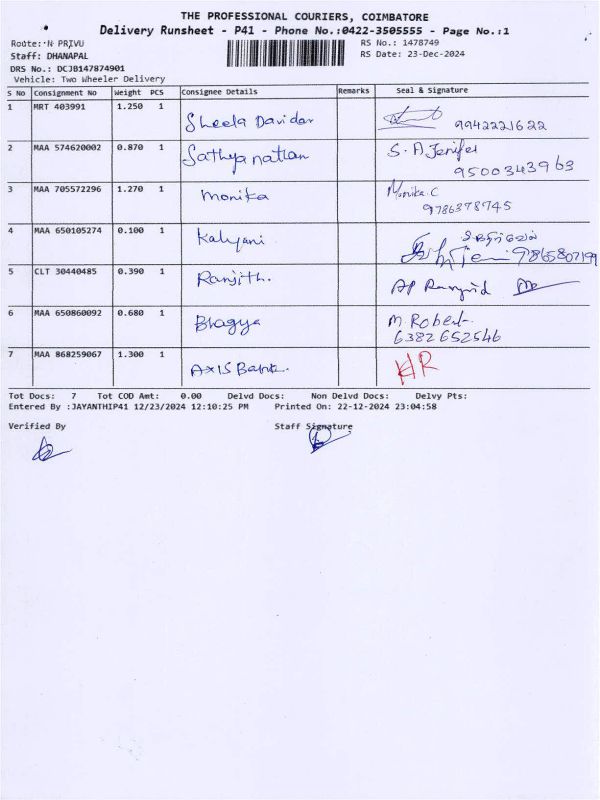 THE PROFESSIONAL COURIERS, COIMBATORE
Delivery Runsheet - P41 - Phone No.:0422-3505555 - Page No.:1
Route: N PRIVU
RS No.: 1478749
Staff: DHANAPAL
RS Date: 23-Dec-2024
DRS No.: DCJB147874901
Vehicle: Two Wheeler Delivery
S No Consignment No Weight PCS Consignee Details Remarks Seal & Signature
1 MRT 403991 1.250 1 Sheela Davidar 9942221622
2 MAA 574620002 0.870 1 Sathyanathan S. A Jenifer
9500343963
3 MAA 705572296 1.270 1 Monika Monika. C
9786378745
4 MAA 650105274 0.100 1 Kalyani 9865807199
5 CLT 30440485 0.390 1 Ranjith. AP
6 MAA 650860092 0.680 1 Bhagya M. Robert
6382652546
7 MAA 868259067 1.300 1 AXIS Bank. HR
Tot Docs: 7 Tot COD Amt: 0.00 Delvd Docs: Non Delvd Docs: Delvy Pts:
Entered By :JAYANTHIP41 12/23/2024 12:10:25 PM Printed On: 22-12-2024 23:04:58
Verified By Staff Signature